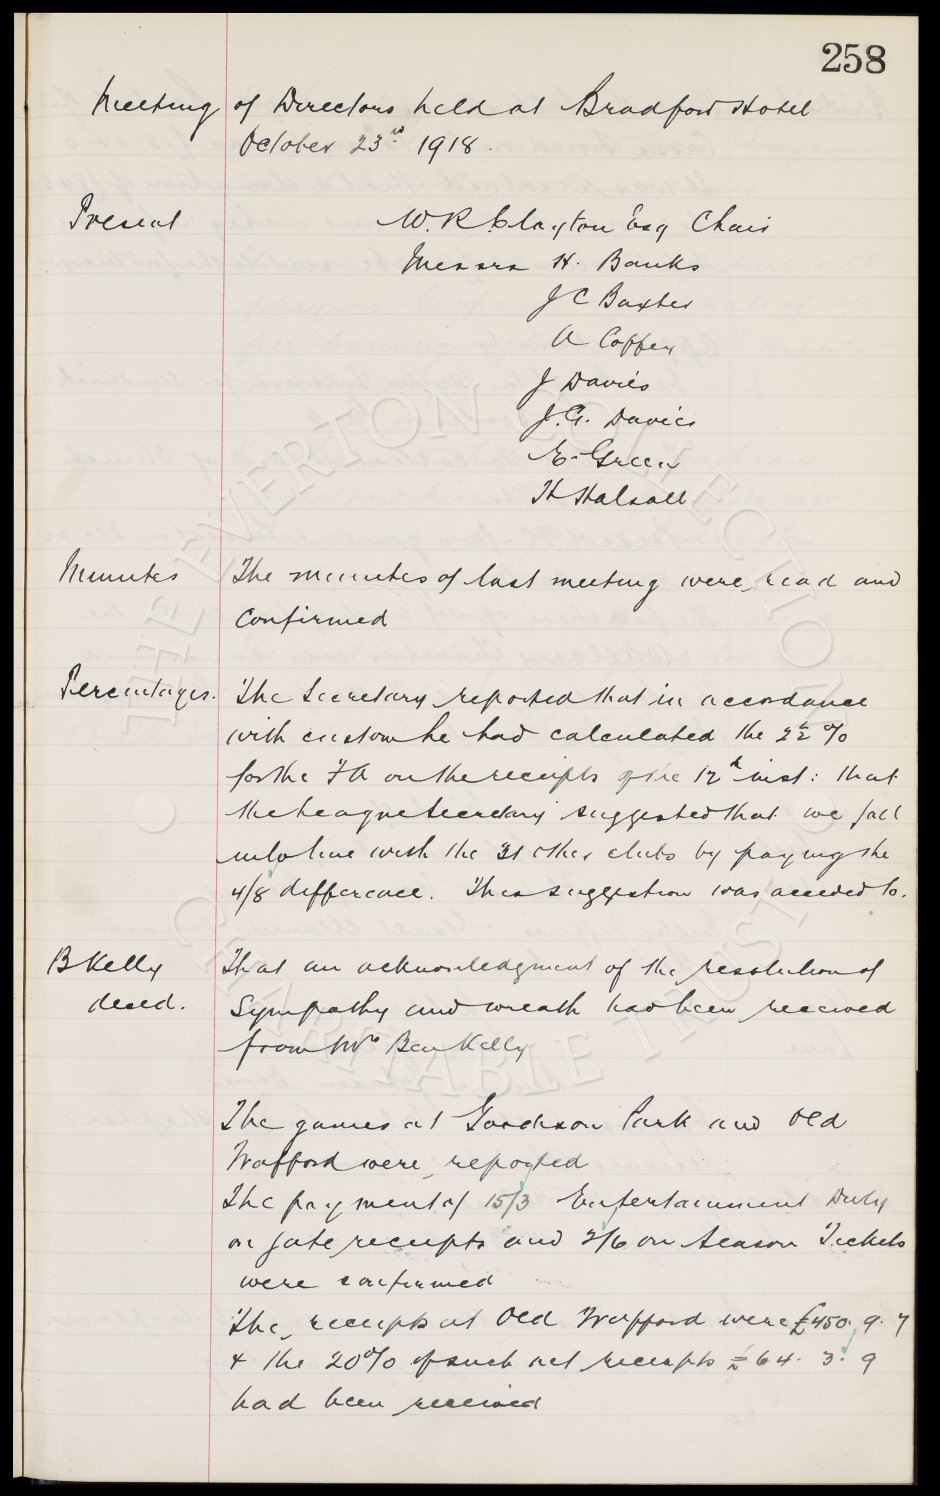 258
Meeting of Directors held at Bradford Hotel
October 23rd 1918.
Present W. R Clayton Esq Chair
Messrs H. Banks
J C Baxter
A Coffey
J Davies
J. G. Davies
E. Green
H Halsall
Minutes The minutes of last meeting were read and
confirmed
Percentages. The Secretary reported that in accordance
with custom he had calculated the 2½ %
for the FA on the receipts of the 12th inst: that
the League Secretary suggested that we fall
into line with the 31 other clubs by paying the
4/8 difference. This suggestion was acceded to.
B Kelly That an acknowledgment of the resolution of
decd. Sympathy and wreath had been received
from Mrs Ben Kelly
The games at Goodison Park and Old
Trafford were reported
The payment of 15/3 Entertainment Duty
on gate receipts and 2/6 on Season Tickets
were confirmed
The receipts at Old Trafford were £450. 9. 7
& the 20% of such net receipts = 64. 3. 9
had been received
THE EVERTON COLLECTION
CHARITABLE TRUST